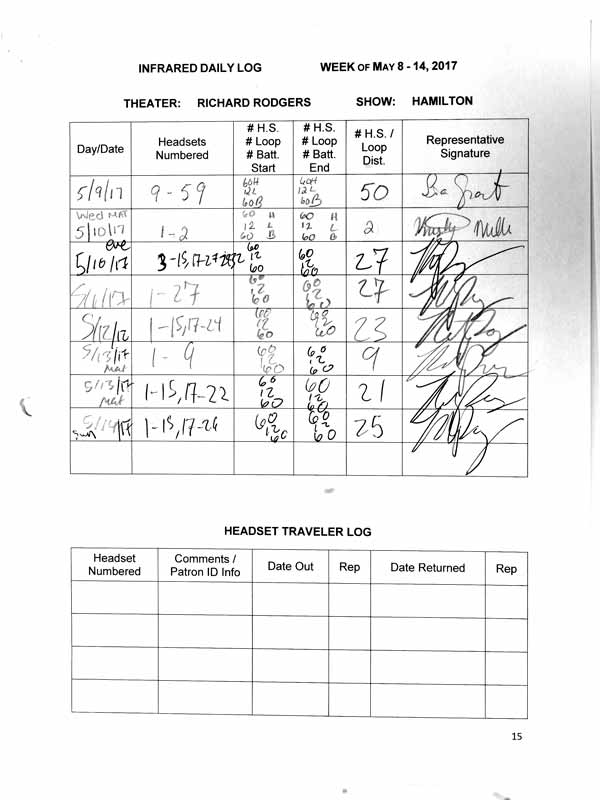 INFRARED DAILY LOG WEEK OF MAY 8 - 14, 2017
THEATER: RICHARD RODGERS SHOW: HAMILTON
Day/Date Headsets Numbered # H.S. # Loop # Batt. Start # H.S. # Loop # Batt. End # H.S. / Loop Dist. Representative Signature
5/9/17 9 - 59 60H 12L 60B 60H 12L 60B 50
Wed Mat 5/10/17 1-2 60 H 12 L 60 B 60 H 12 L 60 B 2
eve 5/10/17 60 12 60 60 12 60 27
5/11/17 1-27 60 12 60 60 12 60 27
5/12/17 1-15,17-24 60 12 60 60 12 60 23
5/13/17 mat 1-9 60 12 60 60 12 60 9
5/13/17 mat 1-15,17-22 60 12 60 60 12 60 21
5/14/17 sun 1-15,17-26 60 12 60 60 12 60 25
HEADSET TRAVELER LOG
Headset Numbered Comments / Patron ID Info Date Out Rep Date Returned Rep
15